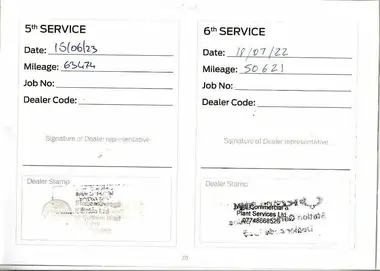 5th SERVICE
Date: 15/06/23
Mileage: 63474
Job No:
Dealer Code:
Signature of Dealer representative
Dealer Stamp
6th SERVICE
Date: 18/07/22
Mileage: 50621
Job No:
Dealer Code:
Signature of Dealer representative
Dealer Stamp
Commercial &
Plant Services Ltd
07748668526